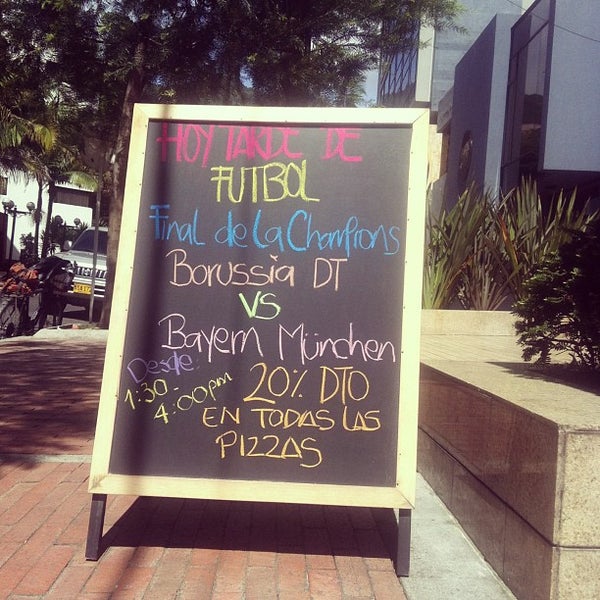 HOY TARDE DE
FUTBOL
Final de la Champions
Borussia DT
VS
Bayern München
Desde:
1:30 -
4:00pm
20% DTO
EN TODAS LAS
PIZZAS